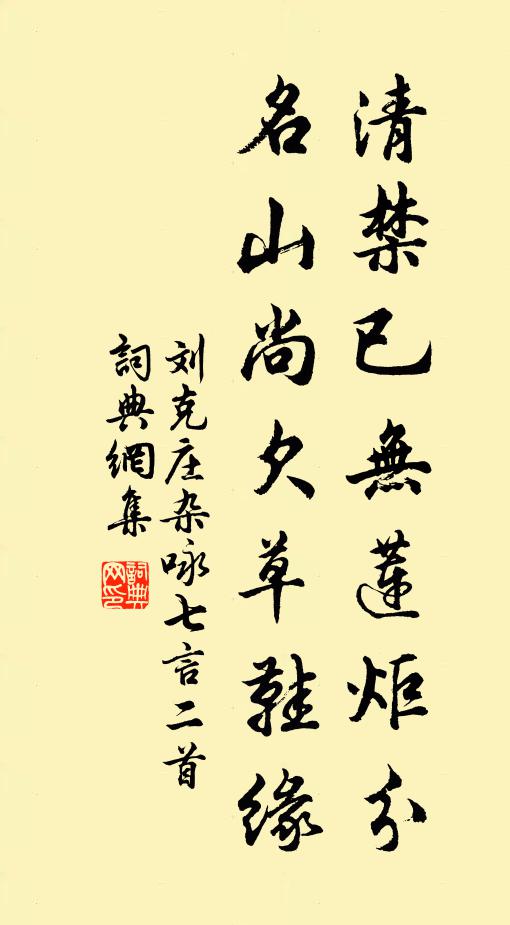 清禁已無蓮炬分
名山尚欠草鞋緣
刘克庄杂咏七言二首
詞典網集
詞典網印